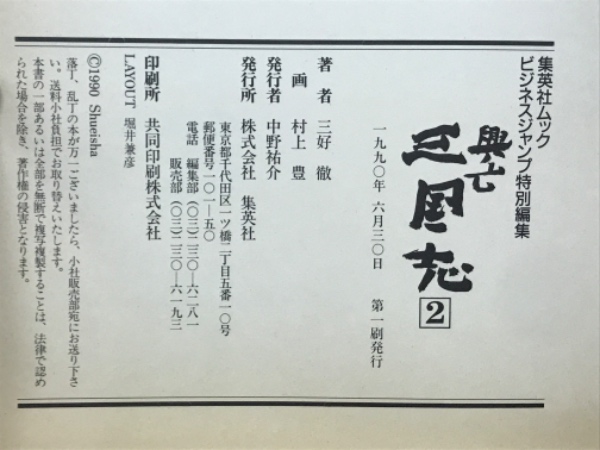 集英社ムック
ビジネスジャンプ特別編集
興亡
三国志
2
一九九〇年 六月三〇日 第一刷発行
著者 三好 徹
画 村上 豊
発行者 中野祐介
発行所 株式会社 集英社
東京都千代田区一ツ橋二丁目五番一〇号
郵便番号一〇一―五〇
電話 編集部(〇三)二三〇―六二八一
販売部(〇三)二三〇―六一九三
印刷所 共同印刷株式会社
LAYOUT 堀井兼彦
©1990 Shueisha
落丁、乱丁の本が万一ございましたら、小社販売部宛にお送り下さ
い。送料小社負担でお取り替えいたします。
本書の一部あるいは全部を無断で複写複製することは、法律で認め
られた場合を除き、著作権の侵害となります。